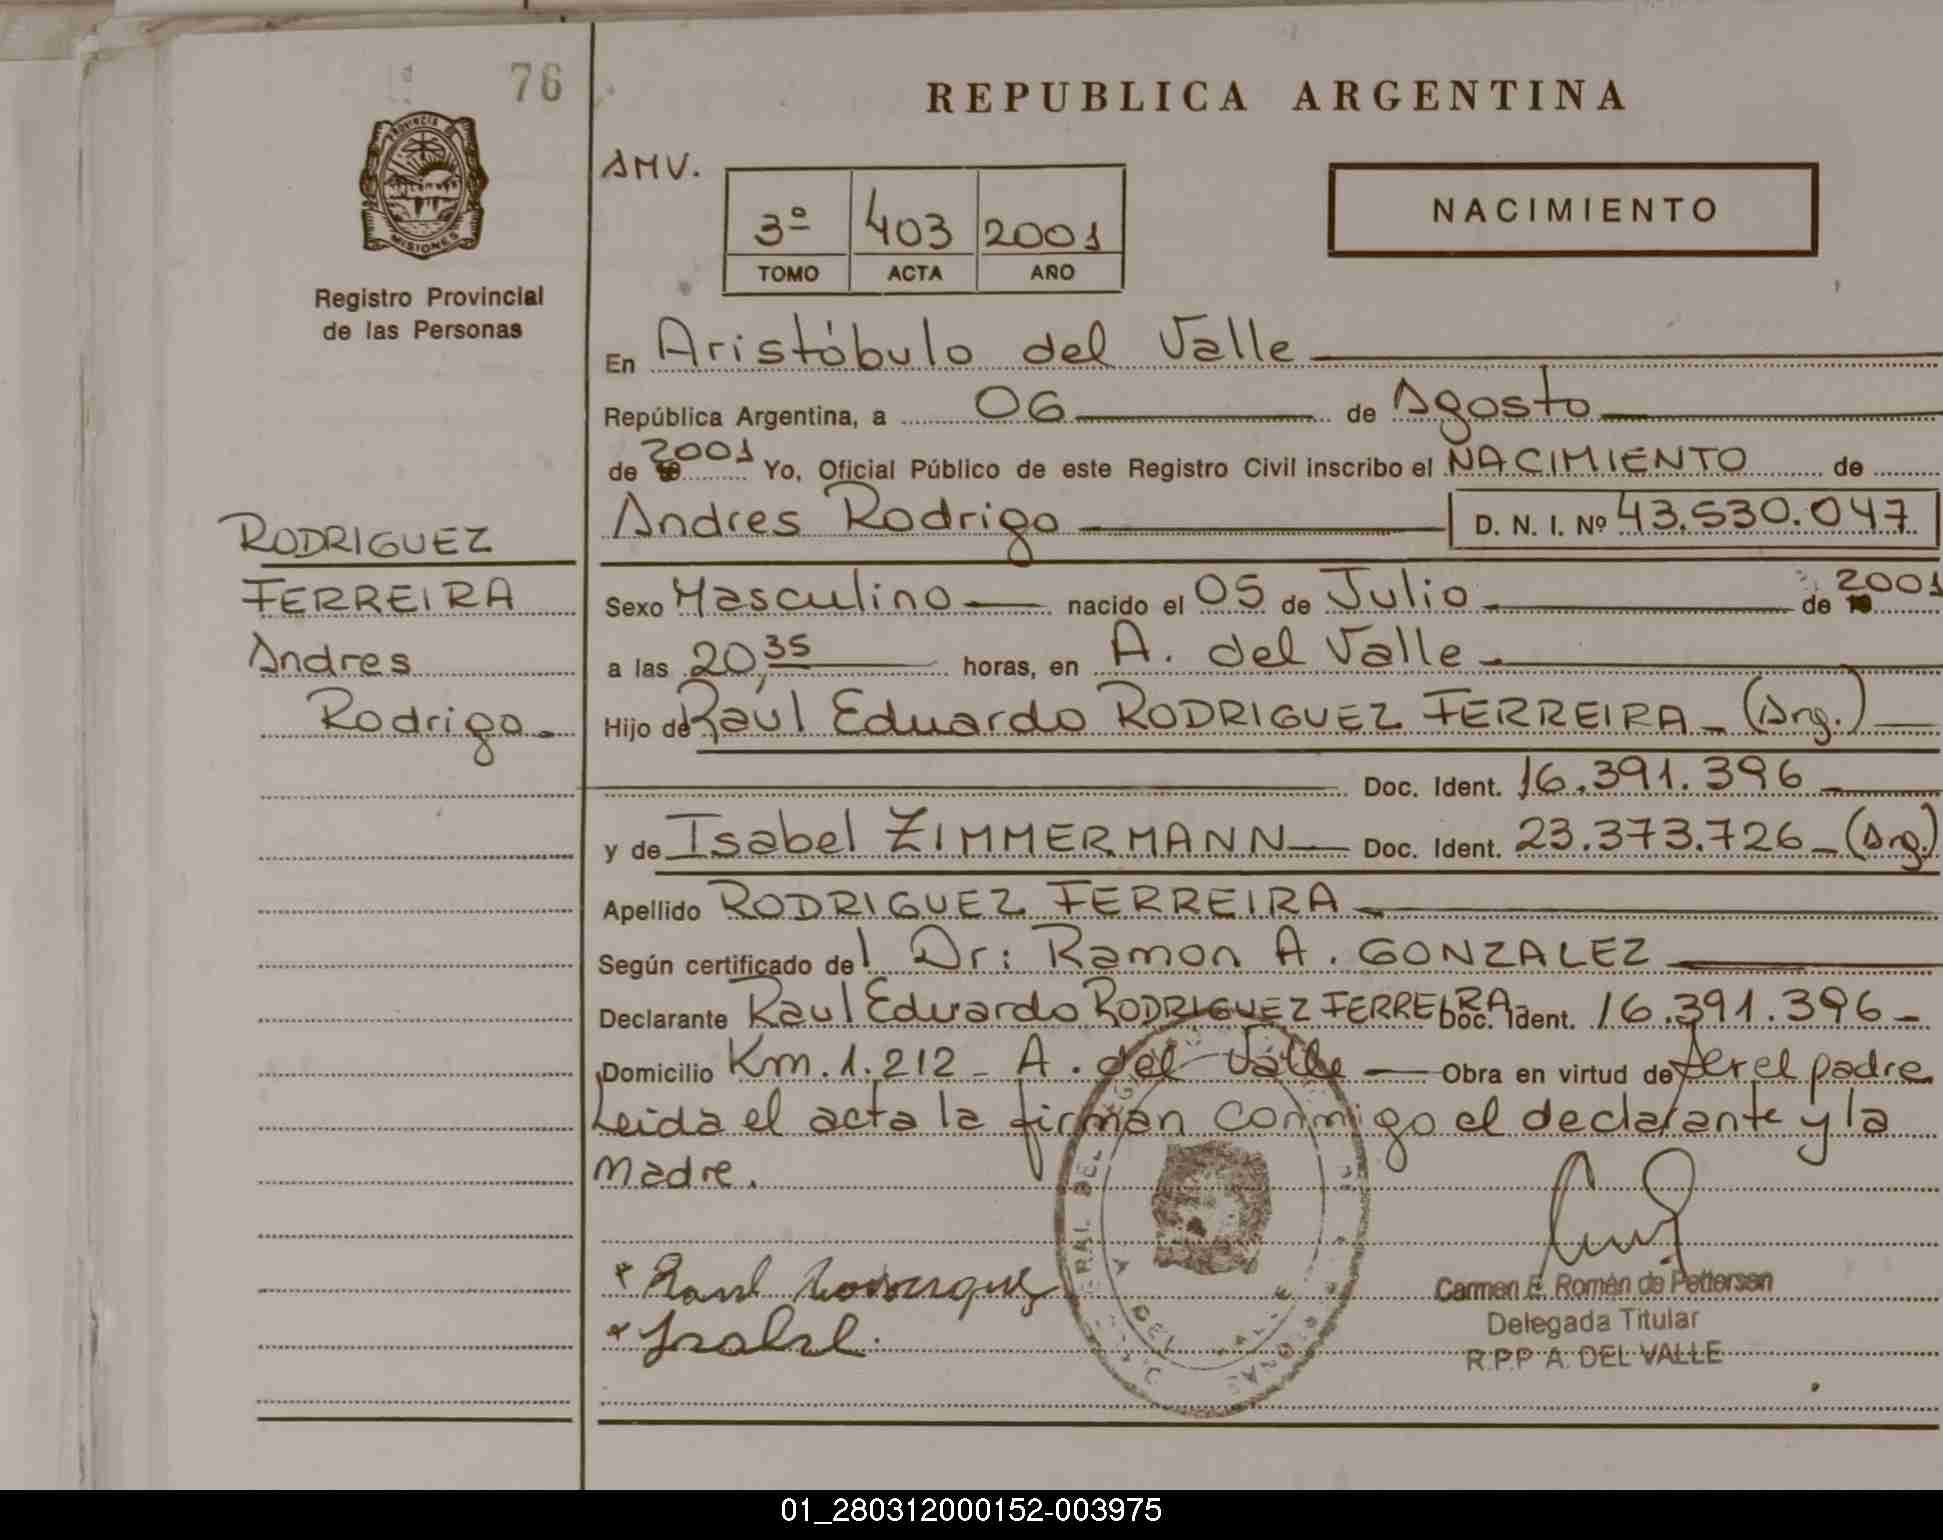 76
REPUBLICA ARGENTINA
PROVINCIA DE
MISIONES
Registro Provincial
de las Personas
AMV.
3º 403 2001
TOMO ACTA AÑO
NACIMIENTO
En Aristóbulo del Valle
República Argentina, a 06 de Agosto
de 2001 Yo, Oficial Público de este Registro Civil inscribo el NACIMIENTO de
Andres Rodrigo D. N. I. Nº 43.530.047
RODRIGUEZ
FERREIRA
Andres
Rodrigo.
Sexo Masculino nacido el 05 de Julio de 2001
a las 20,35 horas, en A. del Valle
Hijo de Raúl Eduardo RODRIGUEZ FERREIRA - (Arg.)
Doc. Ident. 16.391.396
y de Isabel ZIMMERMANN Doc. Ident. 23.373.726 - (Arg.)
Apellido RODRIGUEZ FERREIRA
Según certificado del Dr: Ramon A. GONZALEZ
Declarante Raul Eduardo RODRIGUEZ FERREIRA Doc. Ident. 16.391.396 -
Domicilio Km. 1.212 - A. del Valle Obra en virtud de ser el padre
Leida el acta la firman conmigo el declarante y la
madre.
Raul Rodriguez
Isabel.
DEL VALLE
Carmen E. Román de Pettersen
Delegada Titular
R.P.P A. DEL VALLE
01_280312000152-003975